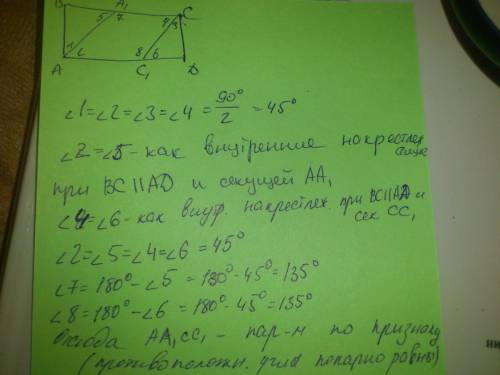 B A₁ C
5 7 4 3
1 2 8 6
A C₁ D
∠1=∠2=∠3=∠4 = 90°/2 = 45°
∠2=∠5 - как внутренние накрестлежащие
при BC||AD и секущей AA₁
∠4=∠6 - как внутр. накрестлеж. при BC||AD и
сек CC₁
∠2=∠5=∠4=∠6 = 45°
∠7=180°-∠5 = 180°-45°=135°
∠8=180°-∠6 = 180°-45°=135°
Отсюда AA₁CC₁ - пар-м по признаку
(противоположн. углы попарно равны)